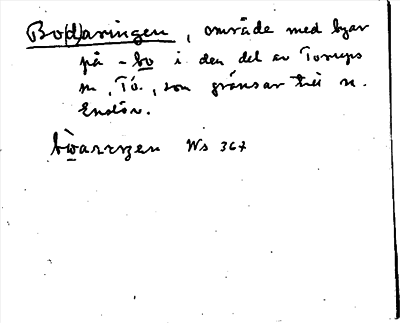 Bo(d)aringen, område med byar
på -bo i den del av Torups
sn, Tö., som gränsar till n.
Enslöv.
bwarrzen Ws 367